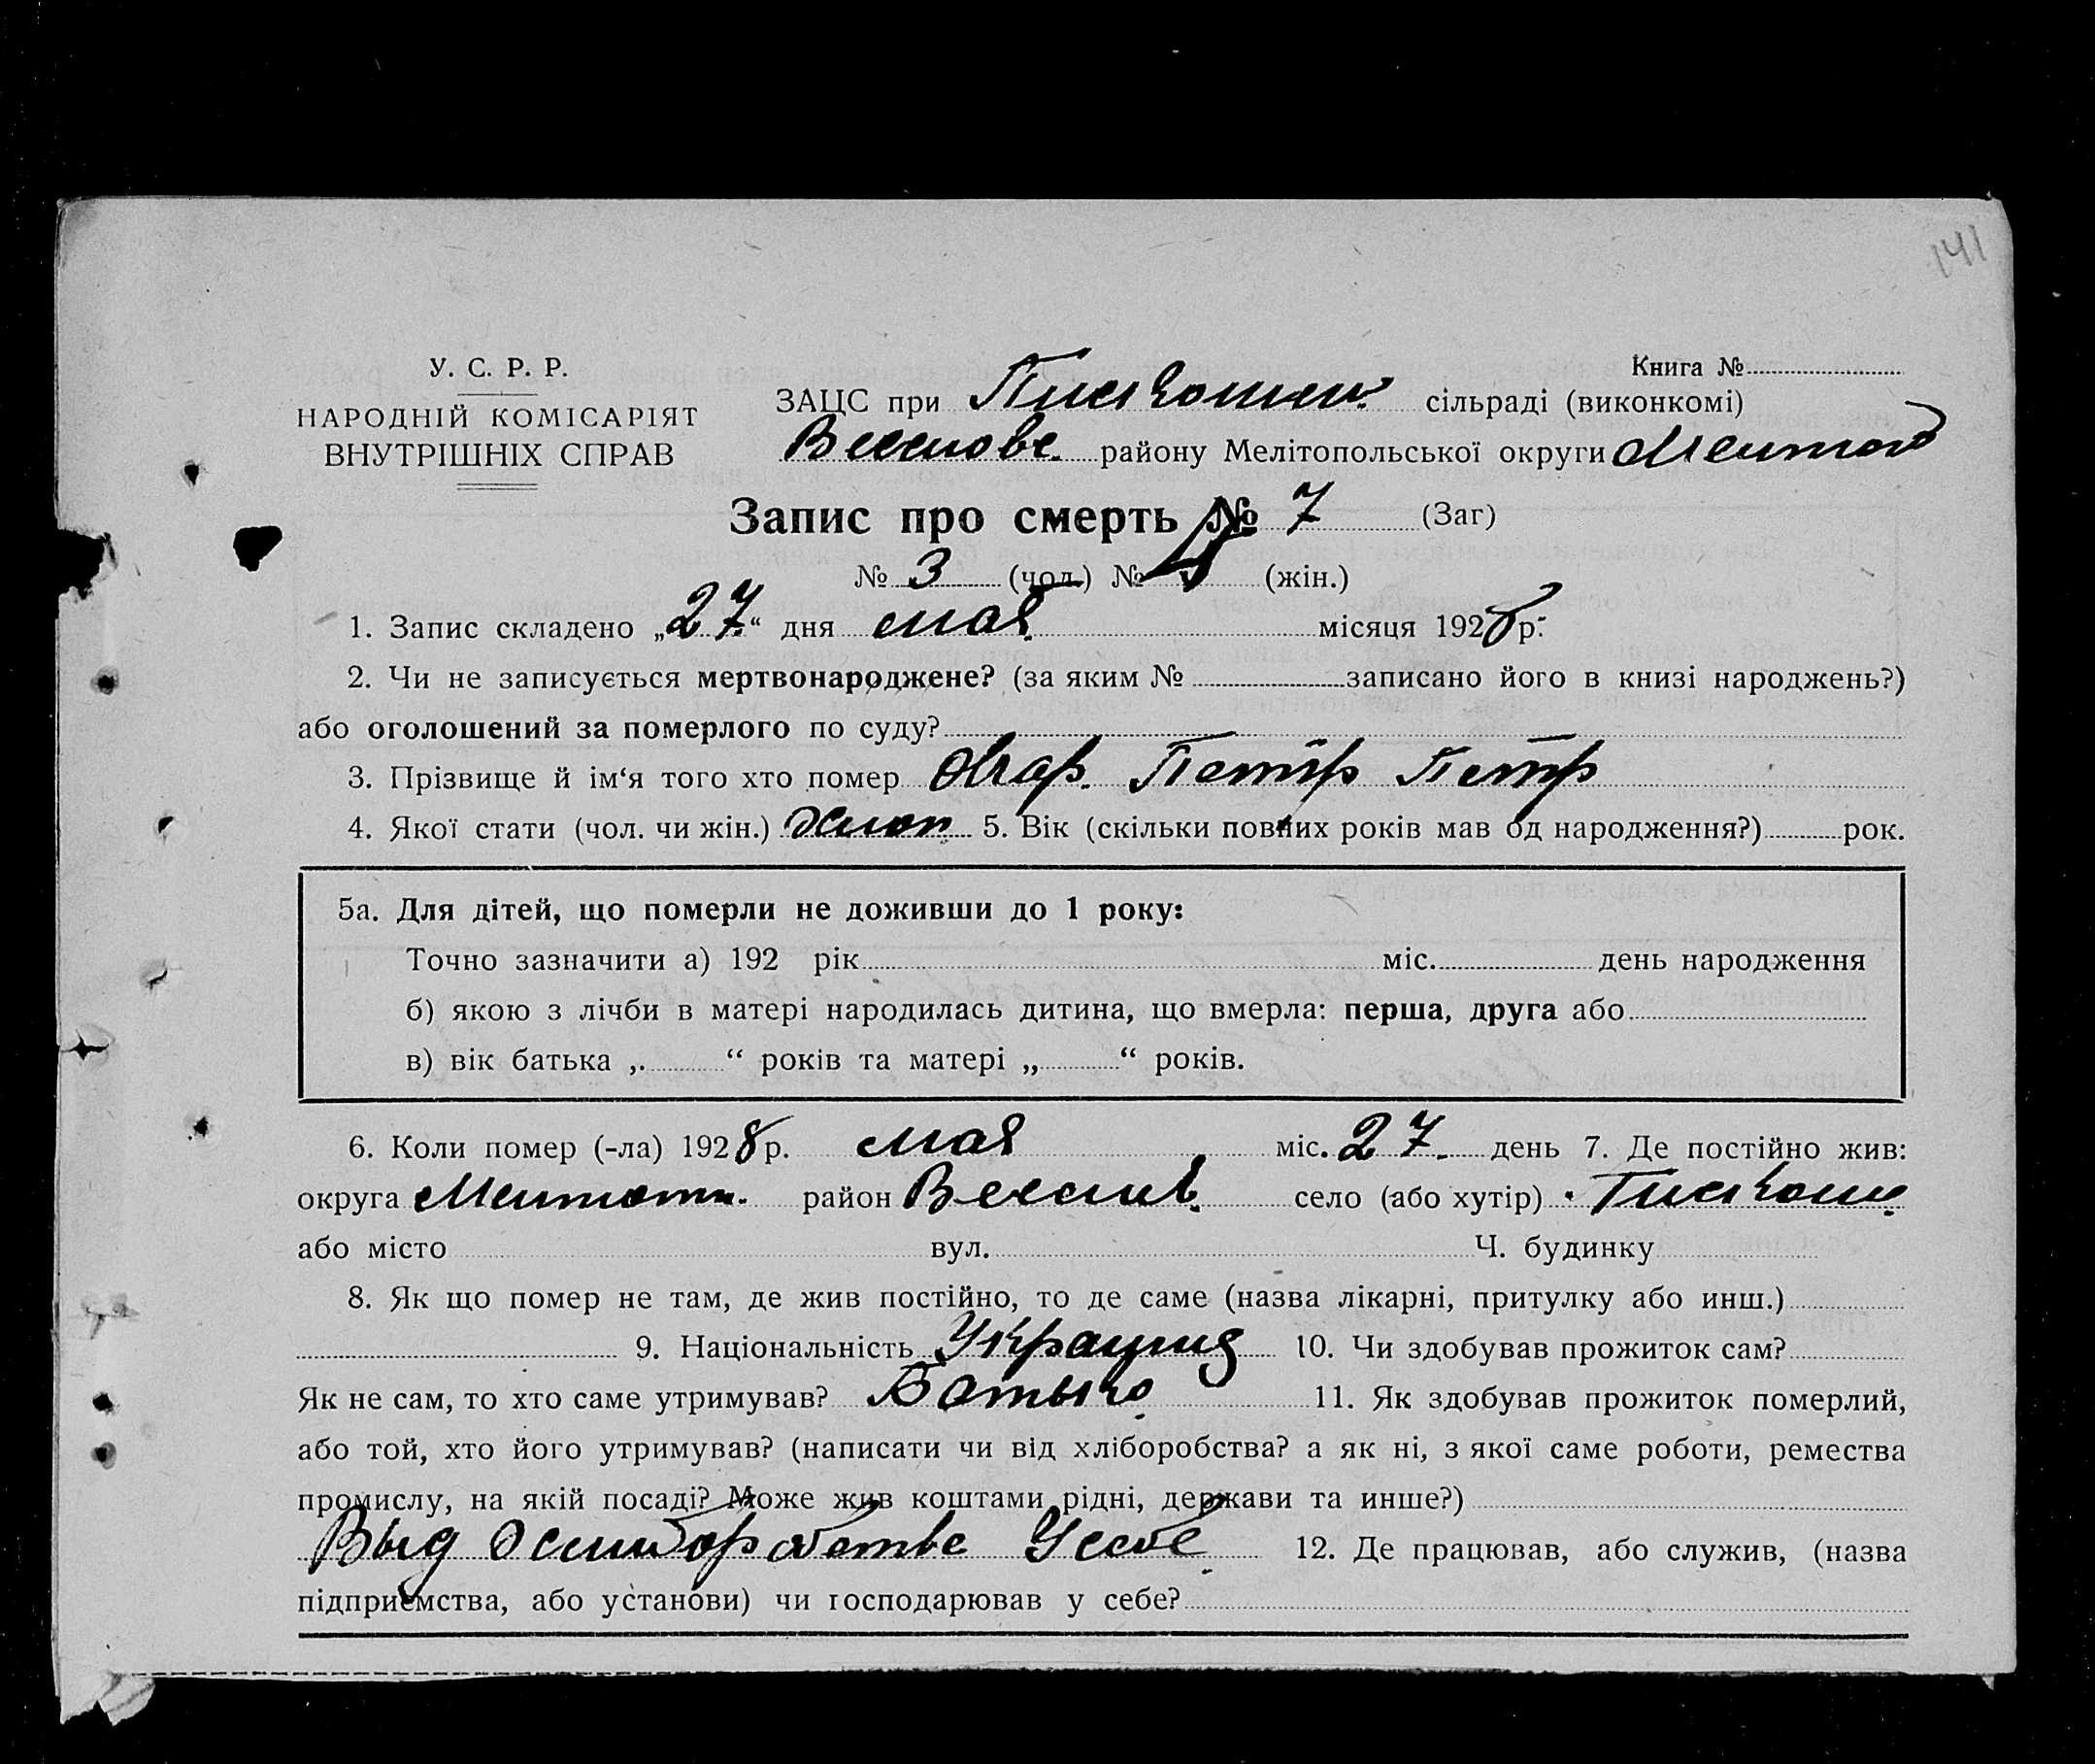 141
У. С. Р. Р.
НАРОДНІЙ КОМІСАРІЯТ
ВНУТРІШНІХ СПРАВ
Книга №
ЗАЦС при Пискошин. сільраді (виконкомі)
району Мелітопольської округи
Запис про смерть № 7 (Заг)
№ 3 (чол.) № (жін.)
1. Запис складено „27“ дня мая місяця 1928 р.
2. Чи не записується мертвонароджене? (за яким № записано його в книзі народжень?)
або оголошений за померлого по суду?
3. Прізвище й ім‘я того хто помер Петр Петр
4. Якої стати (чол. чи жін.) 5. Вік (скільки повних років мав од народження?) рок.
5а. Для дітей, що померли не доживши до 1 року:
Точно зазначити а) 192 рік міс. день народження
б) якою з лічби в матері народилась дитина, що вмерла: перша, друга або
в) вік батька „ “ років та матері „ “ років.
6. Коли помер (-ла) 1928 р. мая міс. 27. день 7. Де постійно жив:
округа район село (або хутір) Пискоши
або місто вул. Ч. будинку
8. Як що помер не там, де жив постійно, то де саме (назва лікарні, притулку або инш.)
9. Національність 10. Чи здобував прожиток сам?
Як не сам, то хто саме утримував? Батько 11. Як здобував прожиток померлий,
або той, хто його утримував? (написати чи від хліборобства? а як ні, з якої саме роботи, ремества
промислу, на якій посаді? Може жив коштами рідні, держави та инше?)
Выд У себе 12. Де працював, або служив, (назва
підприємства, або установи) чи господарював у себе?